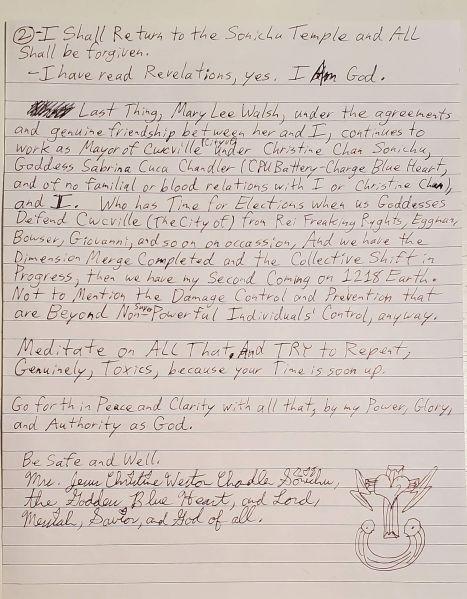 ②-I Shall Return to the Sonichu Temple and All
Shall be forgiven.
-I have read Revelations, yes. I Am God.
Last Thing, Mary Lee Walsh, under the agreements
and genuine friendship between her and I, continues to
work as Mayor of Cwcville (City of) under Christine Chan Sonichu,
Goddess Sabrina Cuca Chandler (CPU Battery-Charge Blue Heart,
and of no familial or blood relations with I or Christine Chan),
and I. Who has Time for Elections when us Goddesses
Defend Cwcville (The City of) from Rei Freaking Ryghts, Eggman,
Bowser, Giovanni, and so on on occassion, And we have the
Dimension Merge Completed and the Collective Shift in
Progress, then we have my Second Coming on 1218 Earth.
Not to Mention the Damage Control and Prevention that
are Beyond Non-Super Powerful Individuals' Control, anyway.
Meditate on ALL That. And TRY to Repent,
Genuinely, Toxics, because your Time is soon up.
Go forth in Peace and Clarity with all that, by my Power, Glory,
and Authority as God.
Be Safe and Well.
Mrs. Christine Weston Chandler Sonichu,
the Goddess Blue Heart, and Lord,
Savior, and God of all.